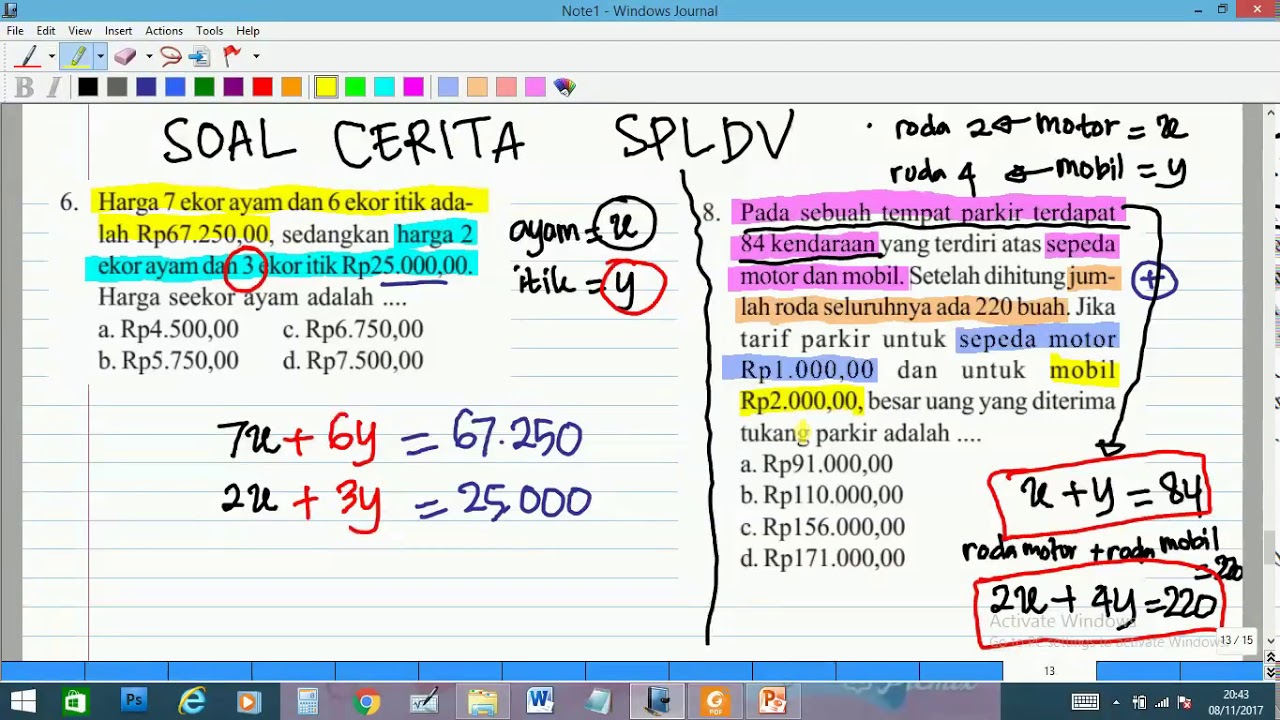 Note1 - Windows Journal
File Edit View Insert Actions Tools Help
B I
SOAL CERITA SPLDV
roda 2 ← motor = x
roda 4 ← mobil = y
6. Harga 7 ekor ayam dan 6 ekor itik ada-
lah Rp67.250,00, sedangkan harga 2
ekor ayam dan 3 ekor itik Rp25.000,00.
Harga seekor ayam adalah ....
a. Rp4.500,00 c. Rp6.750,00
b. Rp5.750,00 d. Rp7.500,00
ayam = x
itik = y
7x + 6y = 67.250
2x + 3y = 25.000
8. Pada sebuah tempat parkir terdapat
84 kendaraan yang terdiri atas sepeda
motor dan mobil. Setelah dihitung jum-
lah roda seluruhnya ada 220 buah. Jika
tarif parkir untuk sepeda motor
Rp1.000,00 dan untuk mobil
Rp2.000,00, besar uang yang diterima
tukang parkir adalah ....
a. Rp91.000,00
b. Rp110.000,00
c. Rp156.000,00
d. Rp171.000,00
+
x + y = 84
roda motor + roda mobil
= 220
2x + 4y = 220
Activate Windows
Go to PC settings to activate Windows.
13 / 15
13
Ps
PDF
20:43
08/11/2017